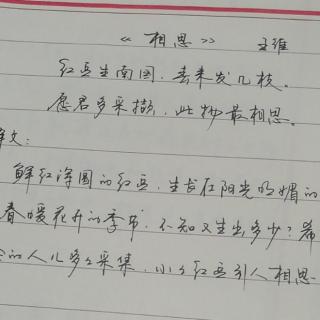 《相思》 王维
红豆生南国，春来发几枝。
愿君多采撷，此物最相思。
译文：
鲜红浑圆的红豆，生长在阳光明媚的
春暖花开的季节，不知又生出多少？希
的人儿多多采集，小小红豆引人相思